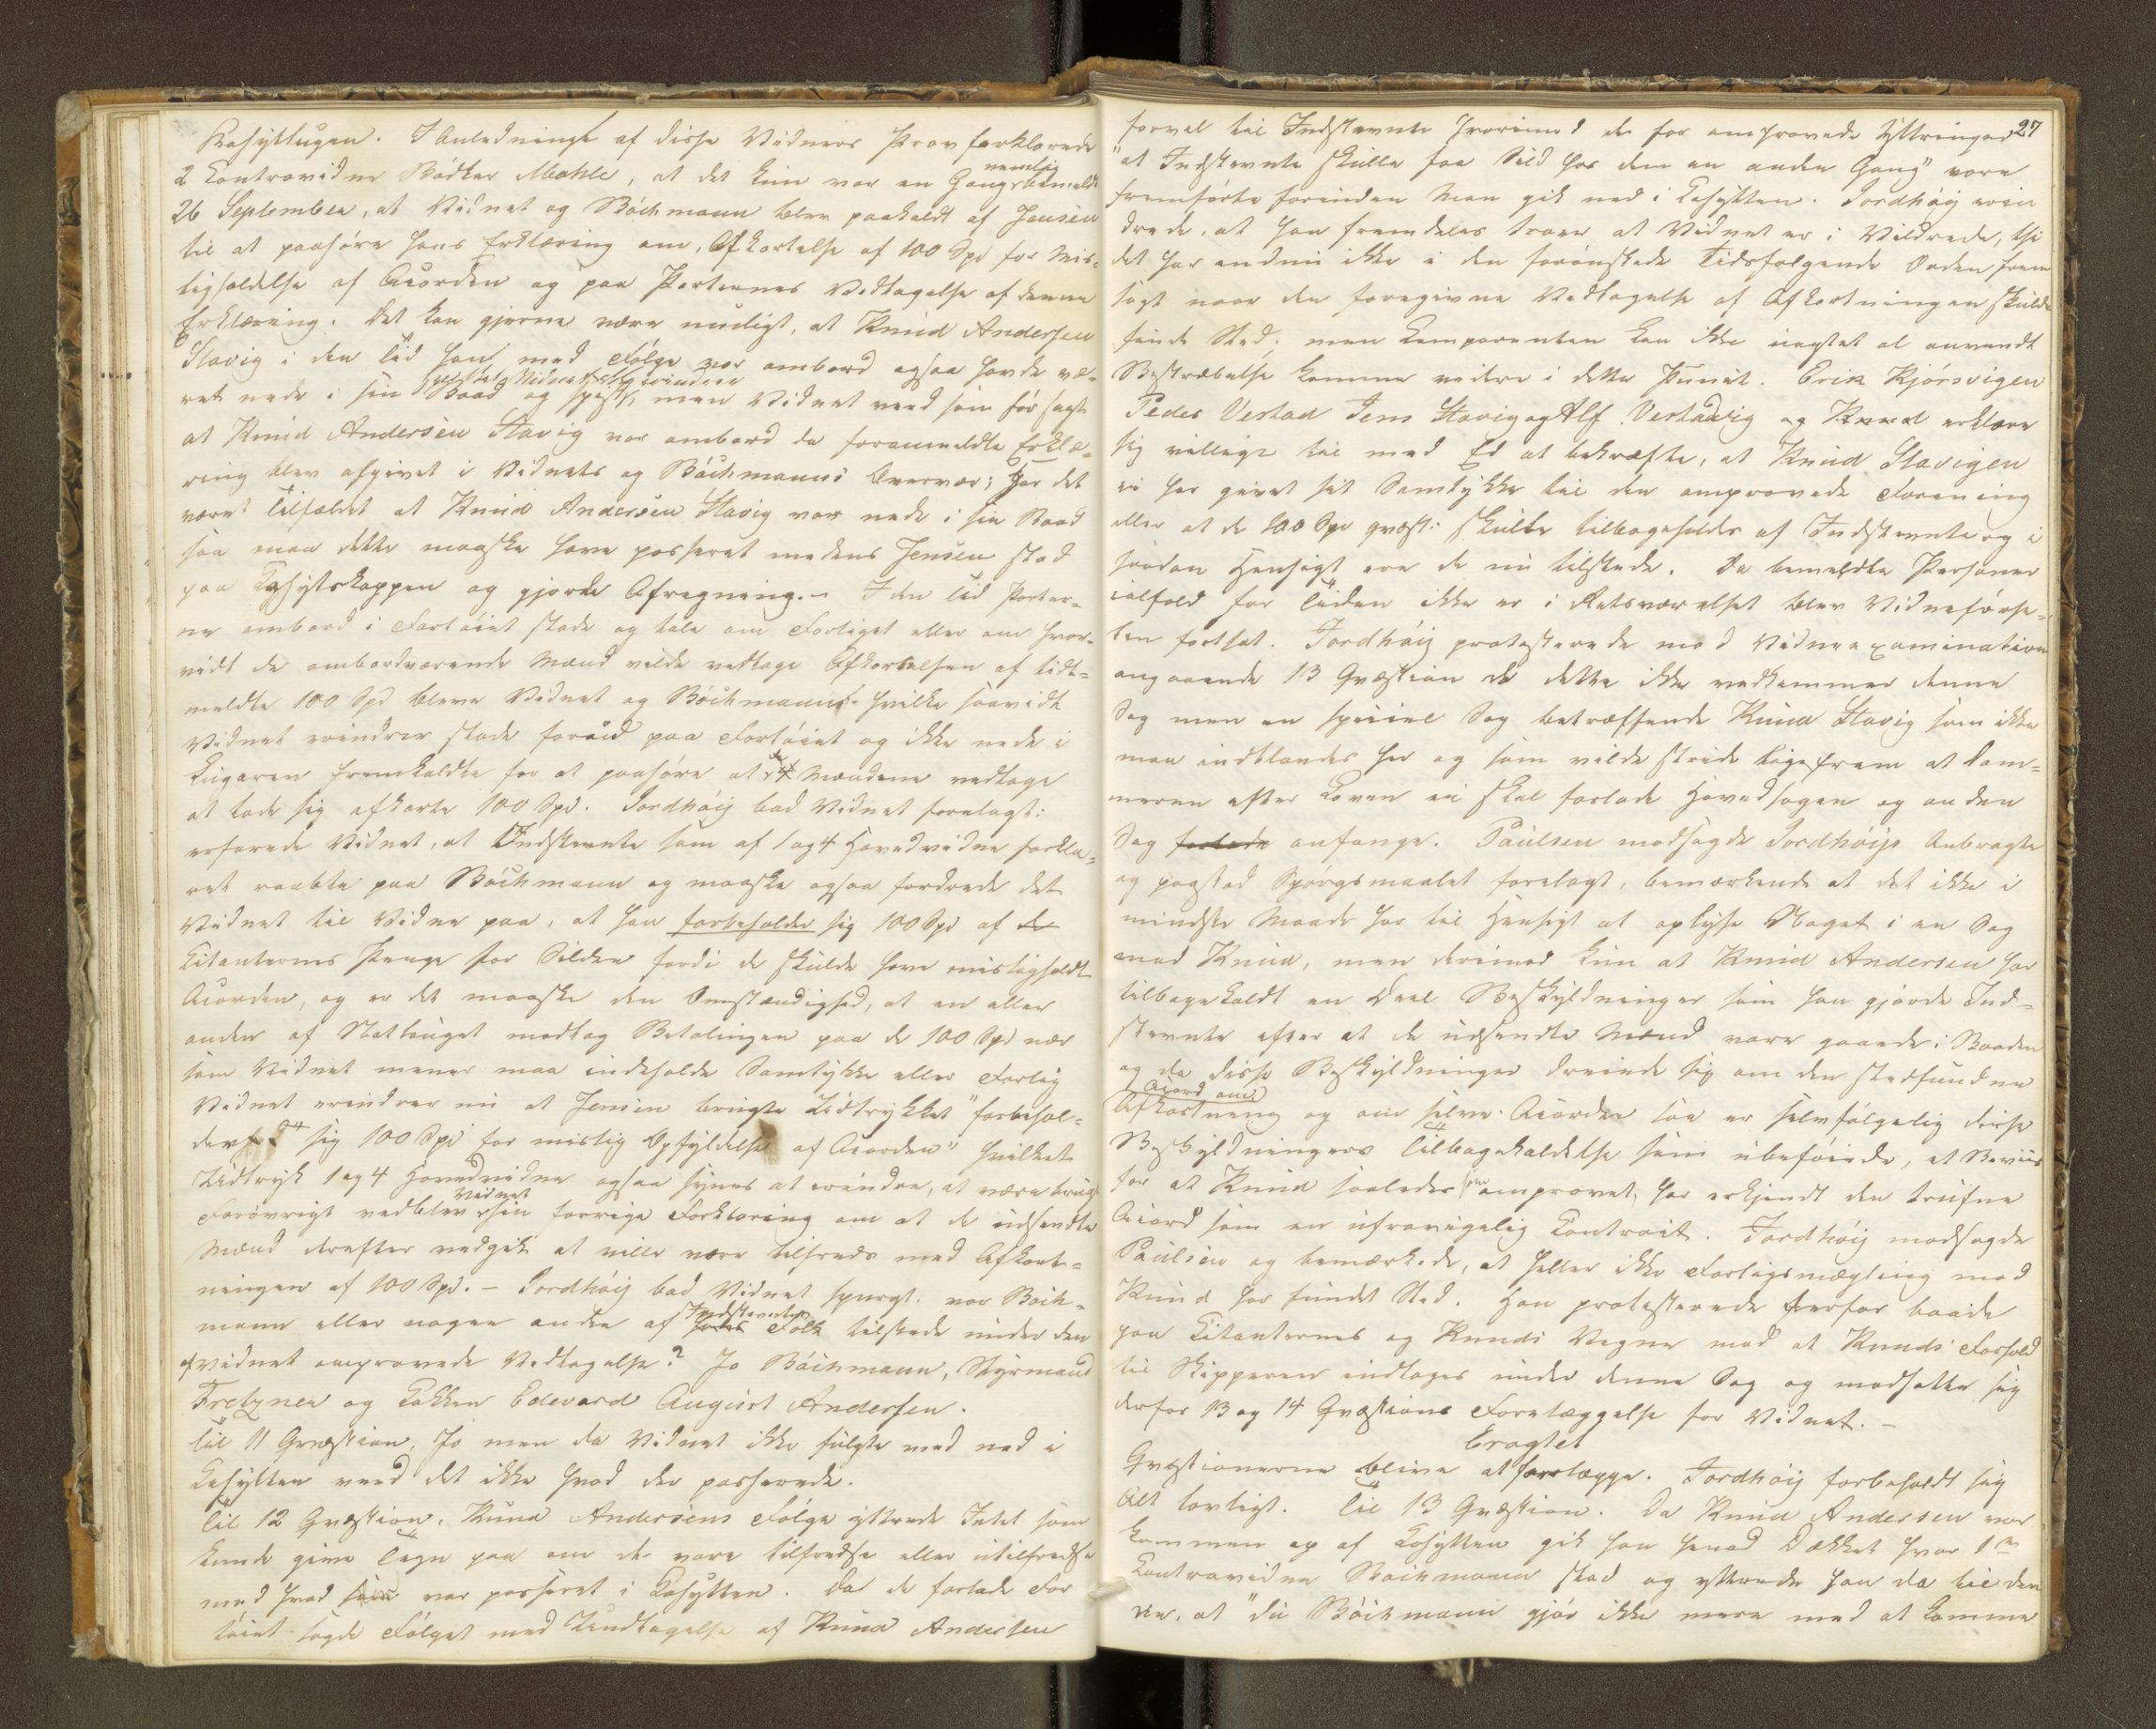 Kahytlugen. I Anledning af disse Vidners Prov forklarede
2 Contravidne Bödker Mohle, at det kun var en Gang nemlig bemeldte
26 September, at Vidnet og Böchmann blev paakaldt af Jensen
til at paahöre hans Erklæring om, Afkortelse af 100 Spd for Mis-
ligholdelse af Accorden og paa Parternes Vedtagelse af denne
Erklæring. Det kan gjerne være muligt, at Knud Andersen
Stavig i den Tid han med Fölge var ombord ogsaa havde væ-
ret nede i sin Baad og spist, hvilket Vidnet ikke erindrer men Vidnet veed som för sagt
at Knud Andersen Stavig var ombord da foranmeldte Erklæ-
ring blev afgivet i Vidnets og Böchmanns Overvær; Har det
været Tilfældet at Knud Andersen Stavig var nede i sin Baad
saa maa dette maaske have passeret medens Jensen stod
paa Kahytskappen og gjorde Afregning. - I den Tid Parter-
ne ombord i Fartöiet stode og tale om Forliget eller om hvor-
vidt de ombordværende Mænd vilde vedtage Afkortelsen af tidt-
meldte 100 Spd bleve Vidnet og Böchmann hvilke saavidt
Vidnet erindrer stode forud paa Fartöiet og ikke nede i
Lugaren fremkaldte for at paahöre at de 4 Mændene vedtage
at lade sig afkorte 100 Spd. Jordhöij bad Vidnet forelagt:
erfarede Vidnet, at Indstevnte som af 1 og 4 Hovedvidne forkla-
ret raabte paa Böchmann og maaske ogsaa fordrede det
Vidnet til Vidne paa, at han forbeholder sig 100 Spd af de
Citanternes Penge for Silden fordi de skulde have misligholdt
Accorden, og er det maaske den Omstændighed, at en eller
anden af Notlauget modtog Betalingen paa de 100 Spd nær
som Vidnet mener maa indeholde Samtykke eller Forlig
Vidnet erindrer nu at Jensen brugte Udtrykket "forbehol-
der sig 100 Spd for mislig Opfyldelse af Accorden" hvilket
Udtryk 1 og 4 Hovedvidne ogsaa synes at erindre, at være brugt
Forövrigt vedblev Vidnet sin forrige Forklaring om at de udsendte
Mænd derefter vedgik at ville være tilfreds med Afkort-
ningen af 100 Spd. - Jordhöij bad Vidnet spurgt. var Böch-
mann eller nogen anden af Indstevntes Folk tilstede under den
af Vidnet omprovede Vedtagelse? Jo Böchmann, Styrmand
Fretzner og Kokken Edevard August Andersen.
Til 11 Qvæstion. Jo men da Vidnet ikke fulgte med ned i
Kahytten veed det ikke hvad der passerede.
Til 12 Qvæstion. Knud Andersens Fölge yttrede Intet som
kunde give Tegn paa om de vare tilfredse eller utilfredse
med hvad som var passeret i Kahytten. Da de forlade Far
töiet sagde Fölget med Undtagelse af Knud Andersen
27
farvel til Indstevnte hvorimod de for omprovede Yttringer
"at Indstevnte skulle faa Sild hos dem en anden Gang" vare
fremförte forinden Man gik ned i Kahytten. Jordhöij erin
drede, at han fremdeles troer at Vidnet er i Vildrede, thi
det har endnu ikke i den forönskede Tidsfølgende Orden frem
sagt naar den foregivne Vedtagelse af Afkortningen skulde
finde Sted; men Comparenten kan ikke uagtet al anvendt
Bestræbelse komme videre i dette Punct. Erik Kjörsvigen
Peder Vestad Jens Stavig og Alf Vestadvig og Knud erklære
sig villige til med Ed at bekræfte, at Knud Stavigen
ei har givet sit Samtykke til den omprovede Forening
eller at de 100 Spd qvæst: skulle tilbageholdes af Indstevnte og i
saadan Hensigt ere de nu tilstede. Da bemeldte Personer
ialfald for Tiden ikke er i Retsværelset blev Vidneförse-
len fortsat. Jordhöij protesterede mod Vidneexamination
angaaende 13 Qvæstion da dette ikke vedkommer denne
Sag men en speciel Sag betræffende Knud Stavig som ikke
maa indblandes her og som vilde stride ligefrem at Dom-
meren efter Loven ei skal forlade Hovedsagen og anden
Sag forlade anfange. Paulsen modsagde Jordhöijs Anbragte
og paastod Spörgsmaalet forelagt, bemærkende at det ikke i
mindste Maade har til Hensigt at oplyse Noget i en Sag
mod Knud, men derimod kun at Knud Andersen har
tilbagekaldt en Deel Beskyldninger som han gjorde Ind-
stevnte efter at de udsendte Mænd vare gaaede i Baaden
og da disse Beskyldninger dreiede sig om den stedfundne
Accord om Afkortning og om selve Accorden saa er selvfölgelig disse
Beskyldningers Tilbagekaldelse som ubeföiede, et Beviis
for at Knud saaledes som omprovet, har erkjendt den trufne
Accord som en ufravigelig Contract. Jordhöij modsagde
Paulsen og bemærkede, at heller ikke Forligsmægling med
Knud har fundet Sted. Han protesterede derfor baade
paa Citanternes og Knuds Vegne mod at Knuds Forhold
til Skipperen indtages under denne Sag og modsatte sig
derfor 13 og 14 Qvæstions Forelæggelse for Vidnet. -
Eragtet
Qvæstionerne blive at forelægge. Jordhöij forbeholdt sig
Alt lovligt. Til 13 Qvæstion. Da Knud Andersen var
kommen op af Kahytten gik han henad Dækket hvor 1ste
Contravidne Böchmann stod og yttrede han da til den
ne, at "du Böchmann gjör ikke mere med at komme